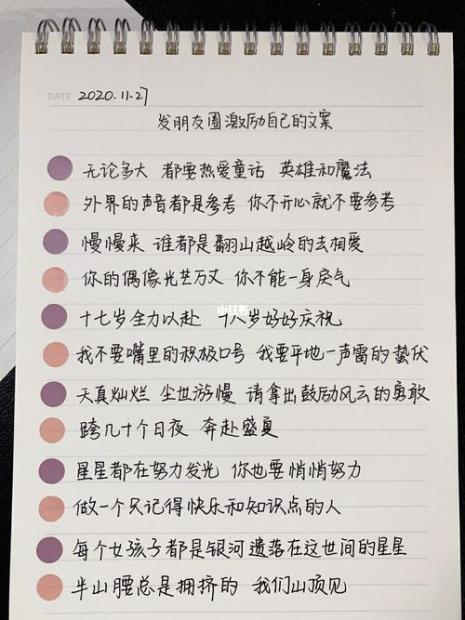 DATE 2020.11.27
发朋友圈激励自己的文案
无论多大 都要热爱童话 英雄和魔法
外界的声音都是参考 你不开心就不要参考
慢慢来 谁都是翻山越岭的去相爱
你的偶像光芒万丈 你不能一身戾气
十七岁全力以赴 十八岁好好庆祝
我不要嘴里的积极口号 我要平地一声雷的蛰伏
天真灿烂 尘世游慢 请拿出鼓励风云的勇敢
跨几十个日夜 奔赴盛夏
星星都在努力发光 你也要悄悄努力
做一个只记得快乐和知识点的人
每个女孩子都是银河遗落在这世间的星星
半山腰总是拥挤的 我们山顶见